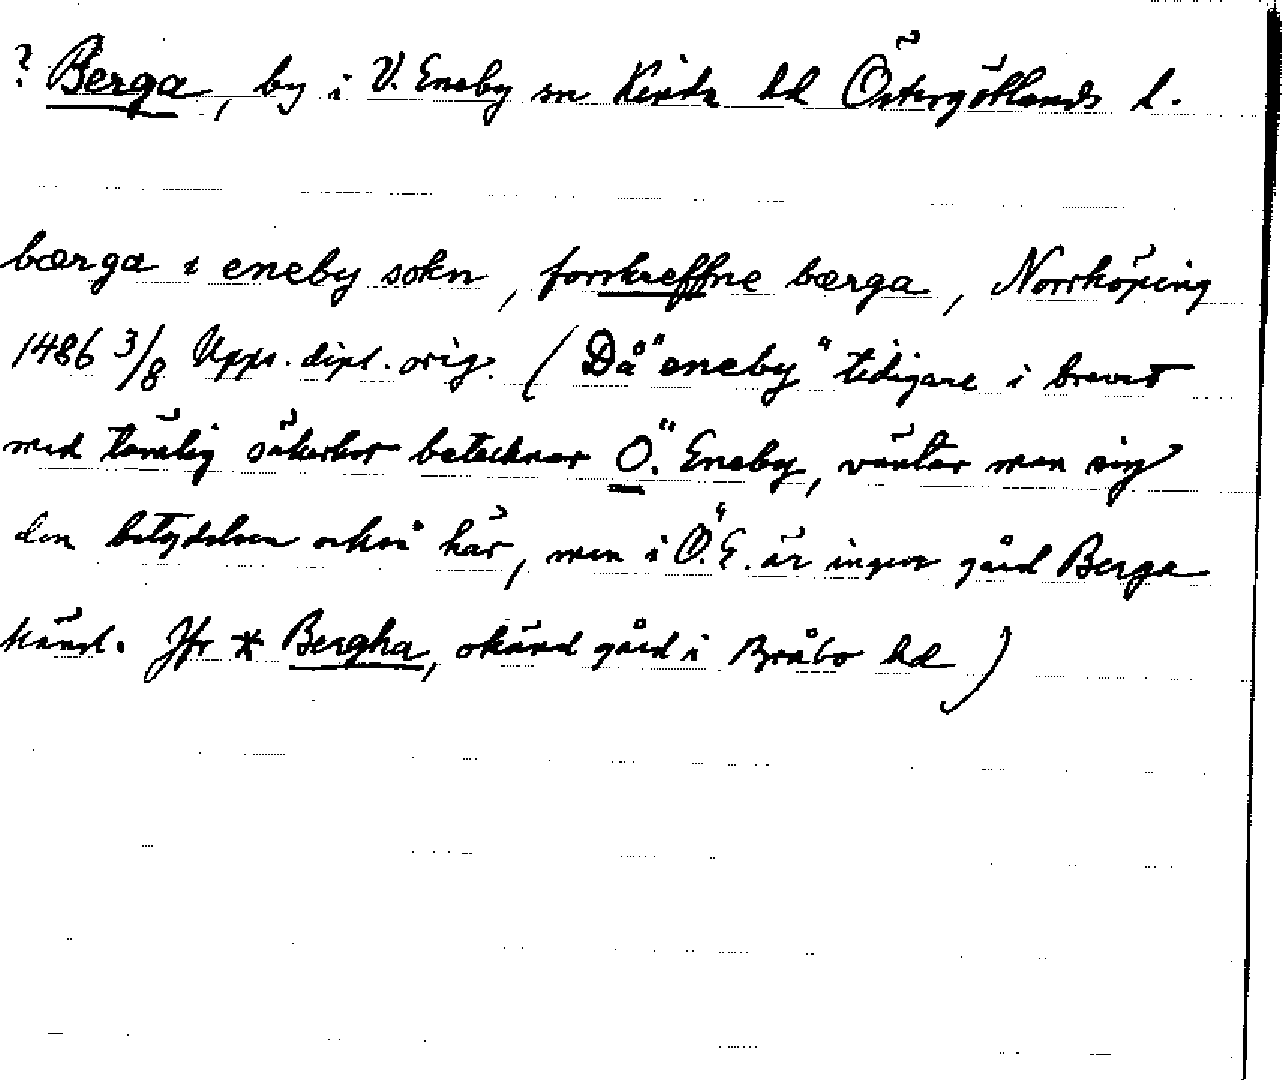 ? Berga, by i V. Eneby sn Kinda hd Östergötlands l.
bærga i eneby sokn, forskreffne bærga, Norrköping
1486 3/8 Upps. dipl. orig. (Då "eneby" tidigare i brevet
med tämlig säkerhet betecknar Ö. Eneby, väntar man sig
den betydelsen också här, men i Ö. E. är ingen gård Berga
känd. Jfr * Bergha, okänd gård i Bråbo hd)